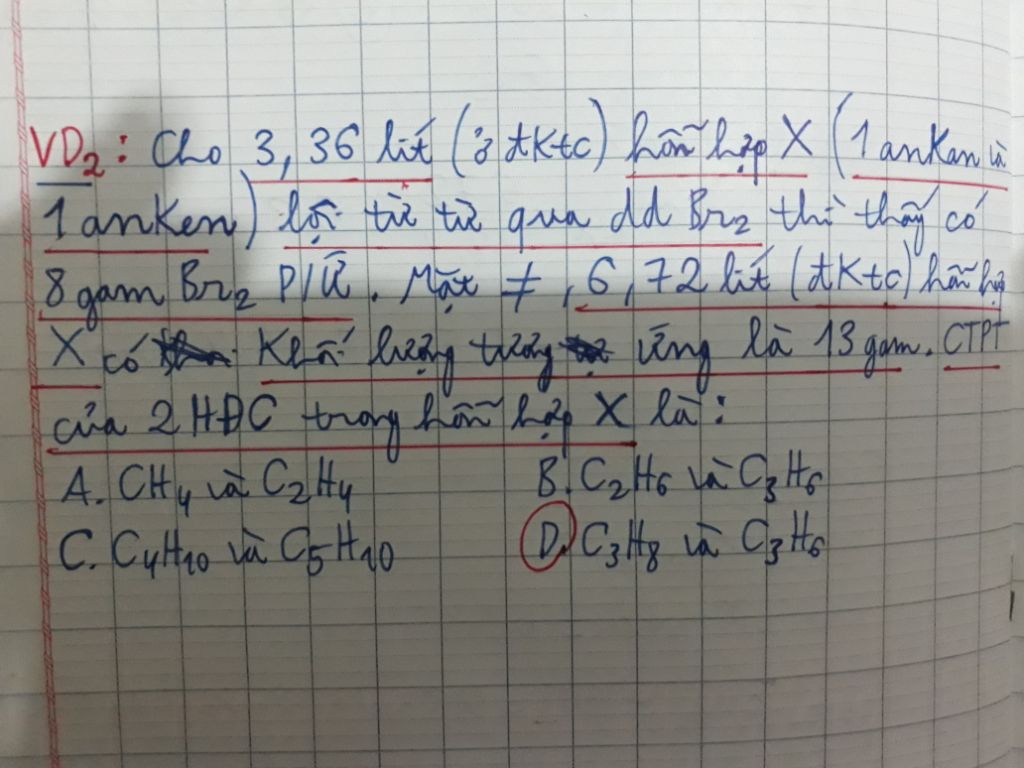 VD2: Cho 3,36 lít (ở đktc) hỗn hợp X (1 ankan và
1 anken) lội từ từ qua dd Br2 thì thấy có
8 gam Br2 P/Ứ. Mặt ≠, 6,72 lít (đktc) hỗn hợp
X có khối lượng tương ứng là 13 gam. CTPT
của 2 HĐC trong hỗn hợp X là:
A. CH4 và C2H4 B. C2H6 và C3H6
C. C4H10 và C5H10 D. C3H8 và C3H6